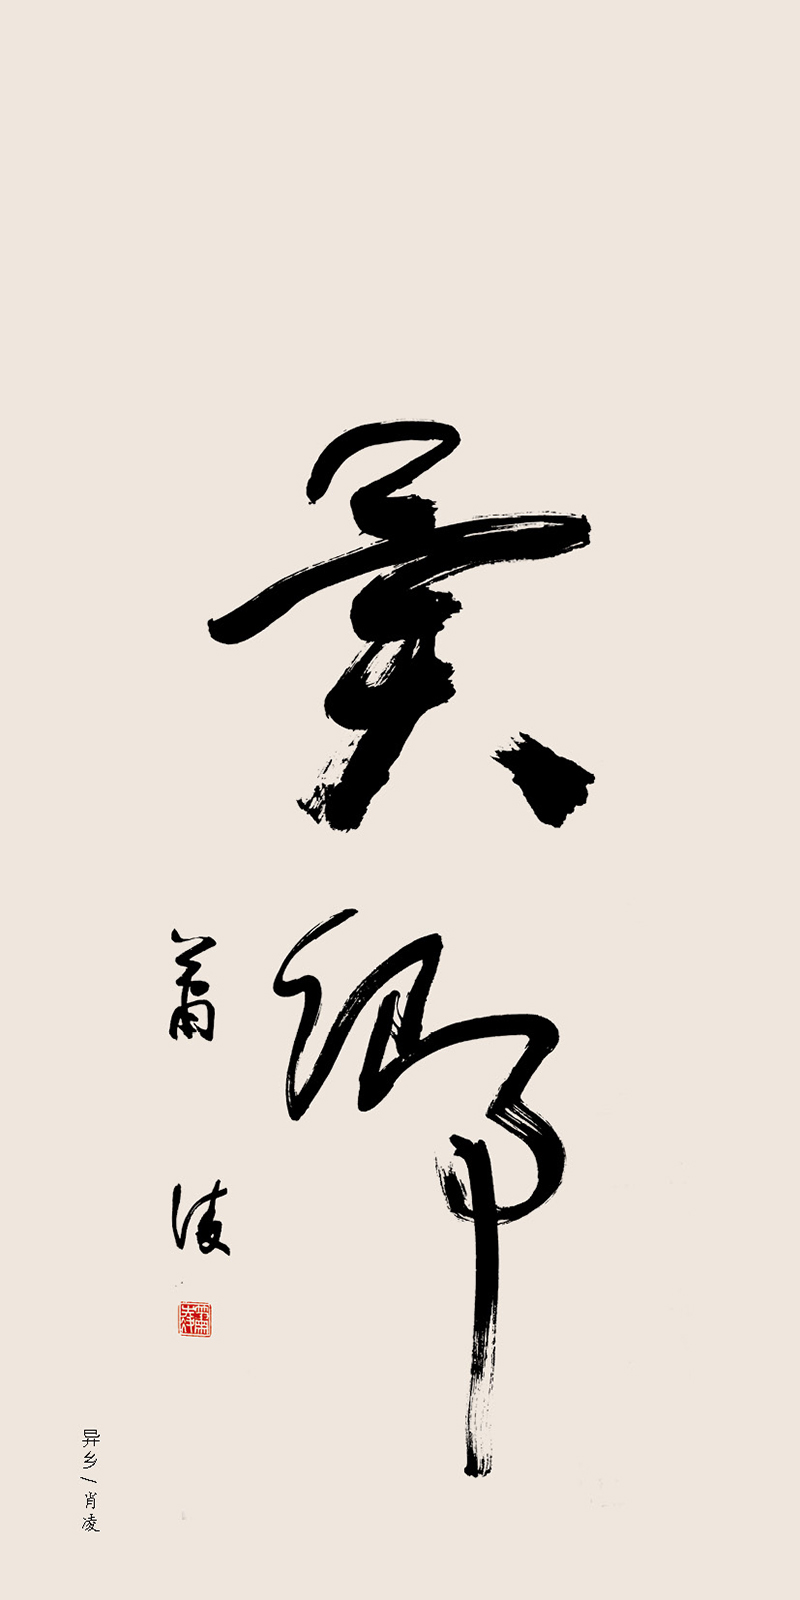 異鄉
蕭凌
异乡/肖凌